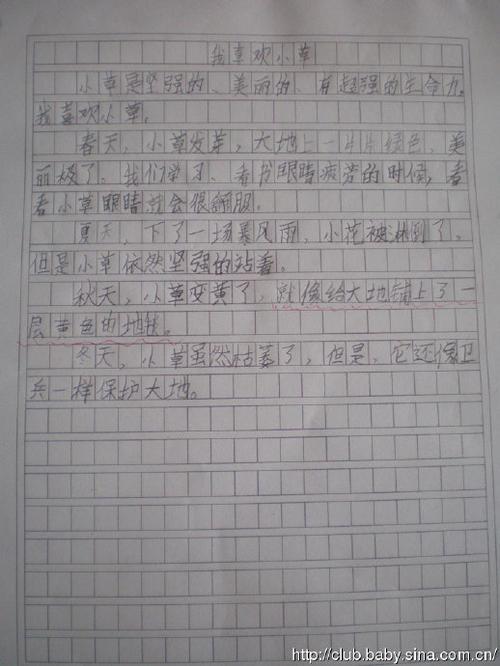 我喜欢小草
小草是坚强的、美丽的、有超强的生命力。
我喜欢小草。
春天,小草发芽,大地上一片片绿色,美
丽极了。我们学习、看书眼睛疲劳的时候,看
看小草眼睛就会很舒服。
夏天,下了一场暴风雨,小花被淋倒了,
但是小草依然坚强的站着。
秋天,小草变黄了,就像给大地铺上了一
层黄色的地毯。
冬天,小草虽然枯萎了,但是,它还像卫
兵一样保护大地。
http://club.baby.sina.com.cn/